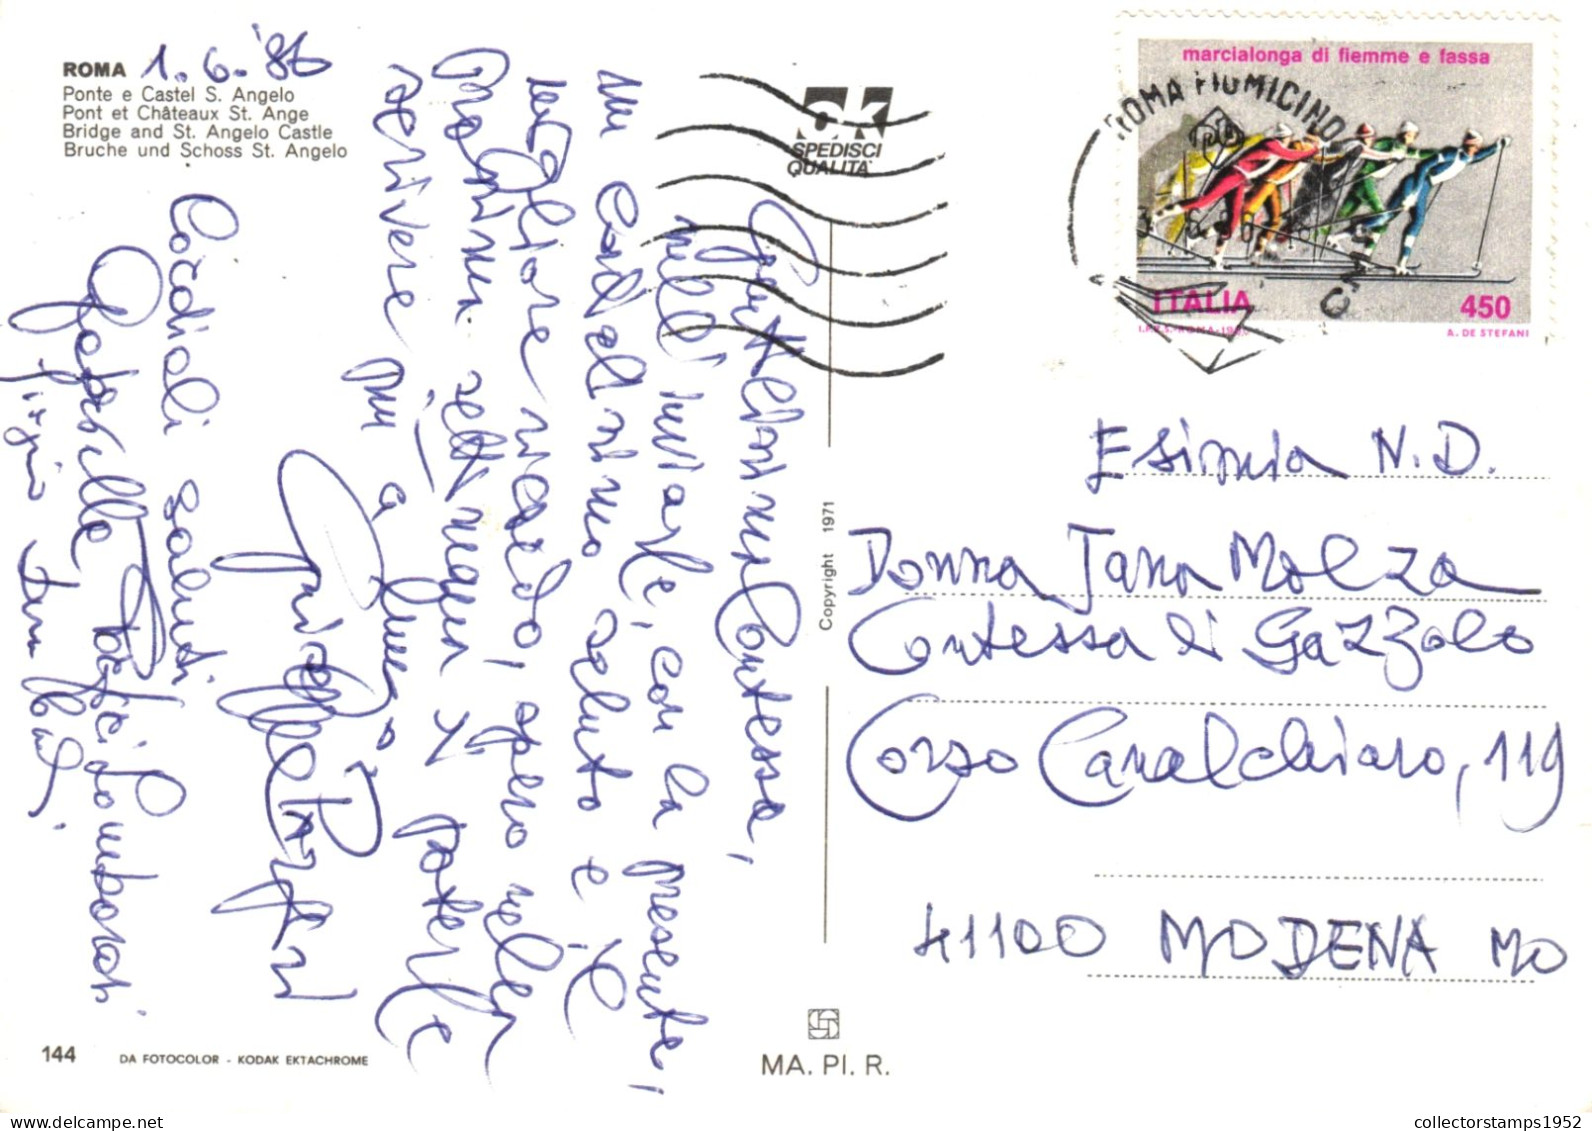 ROMA 1.6.'86
Ponte e Castel S. Angelo
Pont et Châteaux St. Ange
Bridge and St. Angelo Castle
Bruche und Schoss St. Angelo
Gentilissima Contessa,
nell'inviarle, con la presente,
un cordialissimo saluto e il
migliore ricordo, spero nella
prossima settimana di poterle
scrivere più a lungo.
Cordiali saluti
Gabriella Lombardi
OK
SPEDISCI
QUALITÀ
marcialonga di fiemme e fassa
ROMA FIUMICINO
ITALIA 450
I.P.Z.S.-ROMA-1980 A. DE STEFANI
Esimia N.D.
Donna Jana Molza
Contessa di Gazzolo
Corso Canalchiaro, 119
41100 MODENA MO
Copyright 1971
144 DA FOTOCOLOR - KODAK EKTACHROME
MA. PI. R.
collectorstamps1952